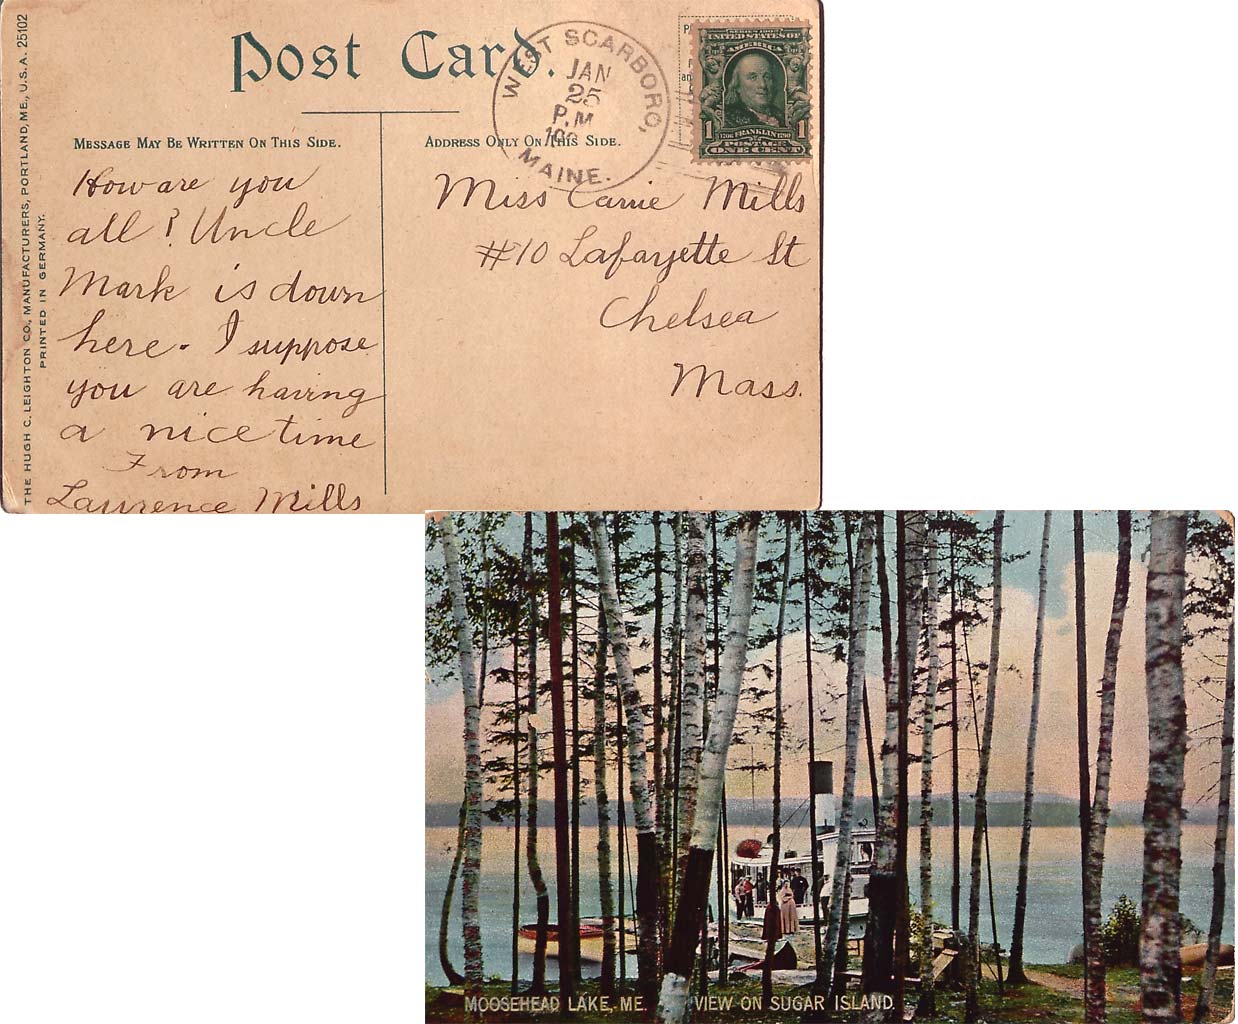 THE HUGH C. LEIGHTON CO., MANUFACTURERS, PORTLAND, ME., U.S.A. 25102
PRINTED IN GERMANY.
Post Card.
WEST SCARBORO,
JAN
25
P.M
MAINE.
SERIES 1902
UNITED STATES OF
AMERICA
1 FRANKLIN 1
POSTAGE
ONE CENT
MESSAGE MAY BE WRITTEN ON THIS SIDE.
ADDRESS ONLY ON THIS SIDE.
How are you
all? Uncle
Mark is down
here. I suppose
you are having
a nice time
From
Laurence Mills
Miss Carrie Mills
#10 Lafayette St
Chelsea
Mass.
MOOSEHEAD LAKE, ME. VIEW ON SUGAR ISLAND.